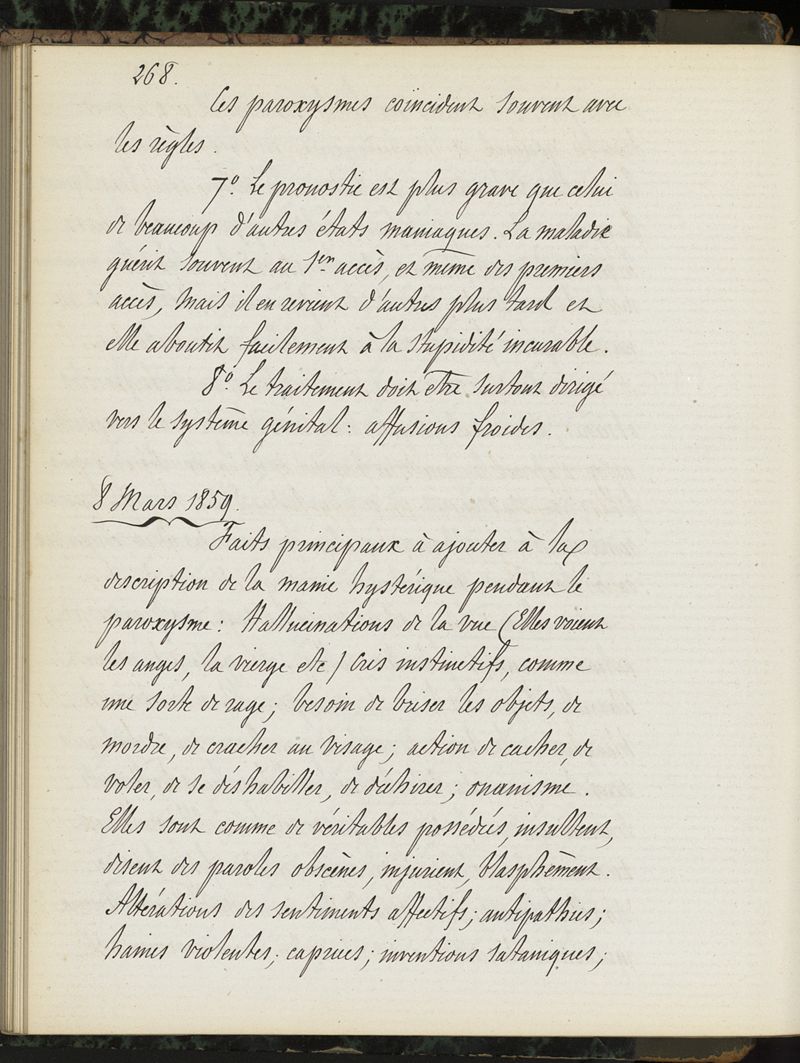 268.
Ces paroxysmes coincident souvent avec
les règles.
7º. Le pronostic est plus grave que celui
de beaucoup d'autres états maniaques. La maladie
guérit souvent au 1er accès, et même des premiers
accès, mais il en revient d'autres plus tard et
elle aboutit facilement à la stupidité incurable.
8º. Le traitement doit être surtout dirigé
vers le système génital : affusions froides.
8 Mars 1859.
Faits principaux à ajouter à la
description de la manie hystérique pendant le
paroxysme : Hallucinations de la vue (Elles voient
les anges, la vierge etc) Cris instinctifs, comme
une sorte de rage ; besoin de briser les objets, de
mordre, de cracher au visage ; action de cacher, de
voler, de se déshabiller, de déchirer ; onanisme.
Elles sont comme de véritables possédées, insultent,
disent des paroles obscènes, injurient, blasphèment.
Altérations des sentiments affectifs ; antipathies ;
haines violentes ; caprices ; inventions sataniques ;